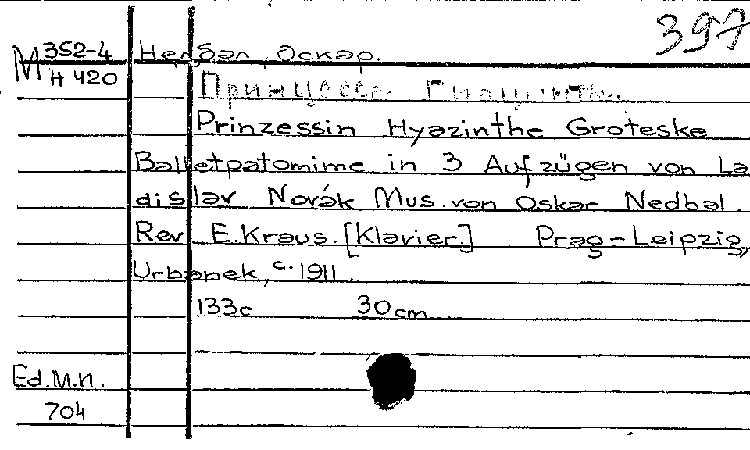 397
М 352-4
Н 420
Недбал, Оскар.
Принцесса Гиацинта.
Prinzessin Hyazinthe Groteske
Balletpatomime in 3 Aufzügen von La
dislav Novák Mus. von Oskar Nedbal.
Rev. E.Kraus.[Klavier.] Prag-Leipzig,
Urbanek, c. 1911
133c 30cm
Ed.M.n.
704